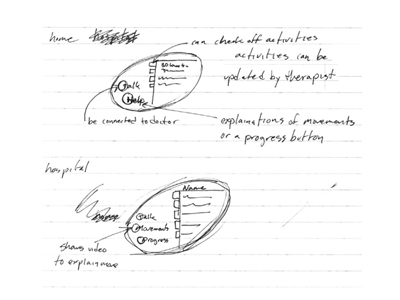 home
can check off activities
activities can be
updated by therapist
Talk
Help
be connected to doctor
explainations of movements
or a progress button
hospital
Name
Talk
Movements
Progress
shows video
to explain move